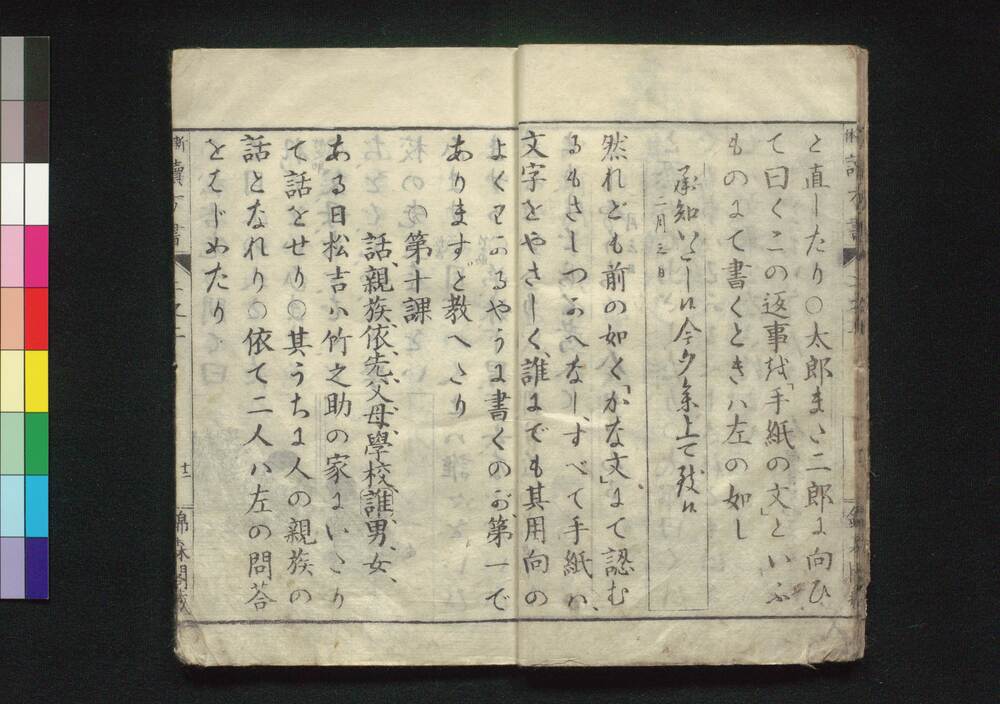 と直したり〇太郎また二郎に向ひ
て曰くこの返事を「手紙の文」といふ
ものにて書くときハ左の如し
承知いたし候今夕参上て致候
二月三日
然れども前の如く「かな文」にて認む
るもさしつかへなし、すべて手紙ハ、
文字をやさしく、誰にでも其用向の
よくわかるやうに書くのが第一で
ありますと教へたり
第十課
話、親族、依、先、父母、學校、誰、男、女、
ある日松吉ハ竹之助の家にいたり
て話をせり〇其うちに人の親族の
話となれり〇依て二人ハ左の問答
をはじめたり
新讀方書
十二
錦森閣蔵